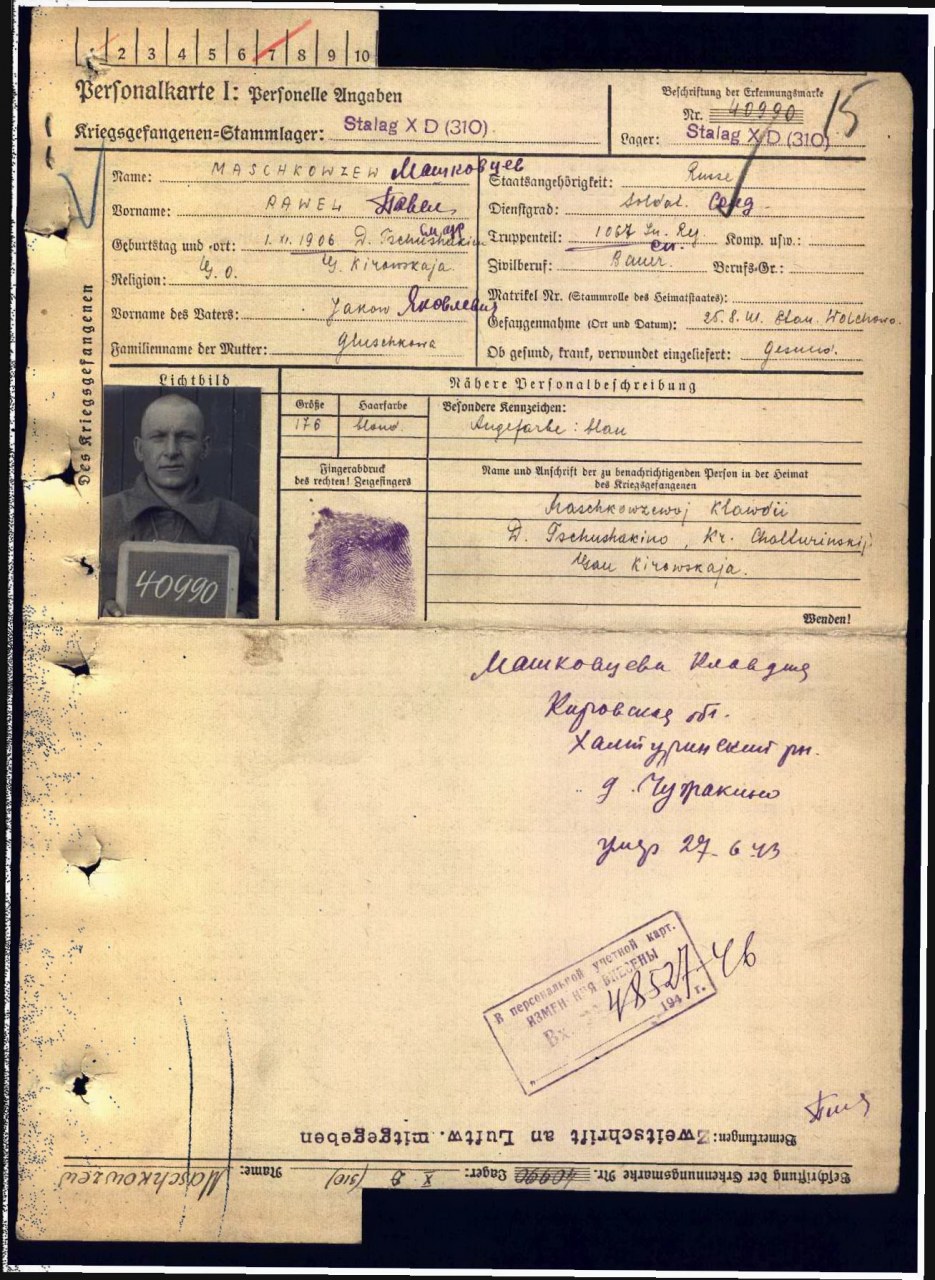 1 2 3 4 5 6 7 8 9 10
Personalkarte I: Personelle Angaben
Kriegsgefangenen-Stammlager: Stalag X D (310)
Beschriftung der Erkennungsmarke
Nr. 40990
Lager: Stalag X D (310)
15
Des Kriegsgefangenen
Name: MASCHKOWZEW Машковцев
Vorname: PAWEL Павел
Geburtstag und -ort: 1. 1906 D. Tschushakin
Religion: G. O. G. Kirowskaja
Vorname des Vaters: Jakow Яковлевич
Familienname der Mutter: Gluschkowa
Staatsangehörigkeit: Russe
Dienstgrad: Soldat.
Truppenteil: 1067 Komp. usw.:
Zivilberuf: Bauer. Berufs-Gr.:
Matrikel Nr. (Stammrolle des Heimatstaates):
Gefangennahme (Ort und Datum): 25. 8. Wolchowo.
Ob gesund, krank, verwundet eingeliefert: gesund.
Lichtbild
40990
Nähere Personalbeschreibung
Größe Haarfarbe Besondere Kennzeichen:
176 blond. Augefarbe: blau
Fingerabdruck
des rechten! Zeigefingers
Name und Anschrift der zu benachrichtigenden Person in der Heimat
des Kriegsgefangenen
Maschkowzewoj Klawdii
D. Tschushakino, Kr. Chalturinskij
Gau Kirowskaja.
Wenden!
Машковцева Клавдия
Кировская обл.
Халтуринский рн.
д. Чужакино
умер 27 6 43
В персональной учетной карт.
ИЗМЕНЕНИЯ ВНЕСЕНЫ
Вх. 48527 46
194 г.
Bemerkungen: Zweitschrift an Luftw. mitgegeben
Beschriftung der Erkennungsmarke Nr. 40990 Lager: X D (310) Name: Maschkowzew